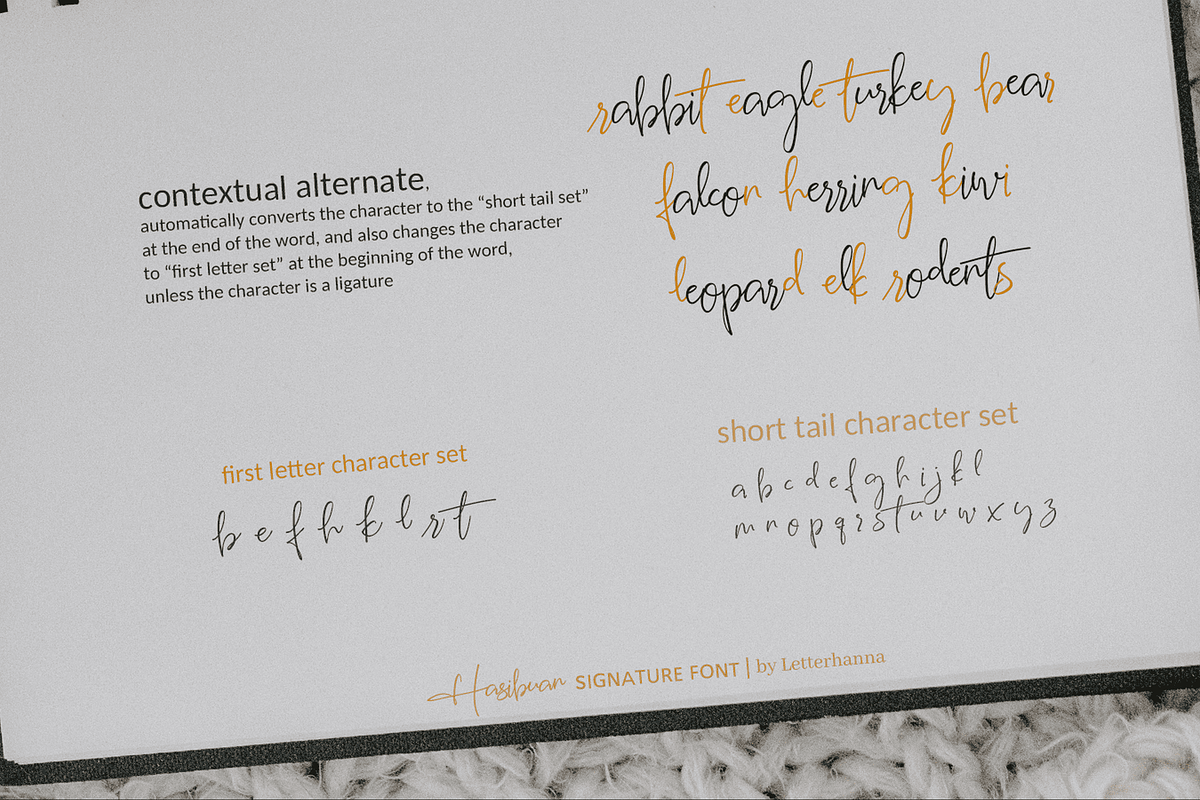 contextual alternate,
automatically converts the character to the “short tail set”
at the end of the word, and also changes the character
to “first letter set” at the beginning of the word,
unless the character is a ligature
rabbit eagle turkey bear
falcon herring kiwi
leopard elk rodents
first letter character set
b e f h k l r t
short tail character set
a b c d e f g h i j k l
m n o p q r s t u v w x y z
Hasibuan SIGNATURE FONT | by Letterhanna